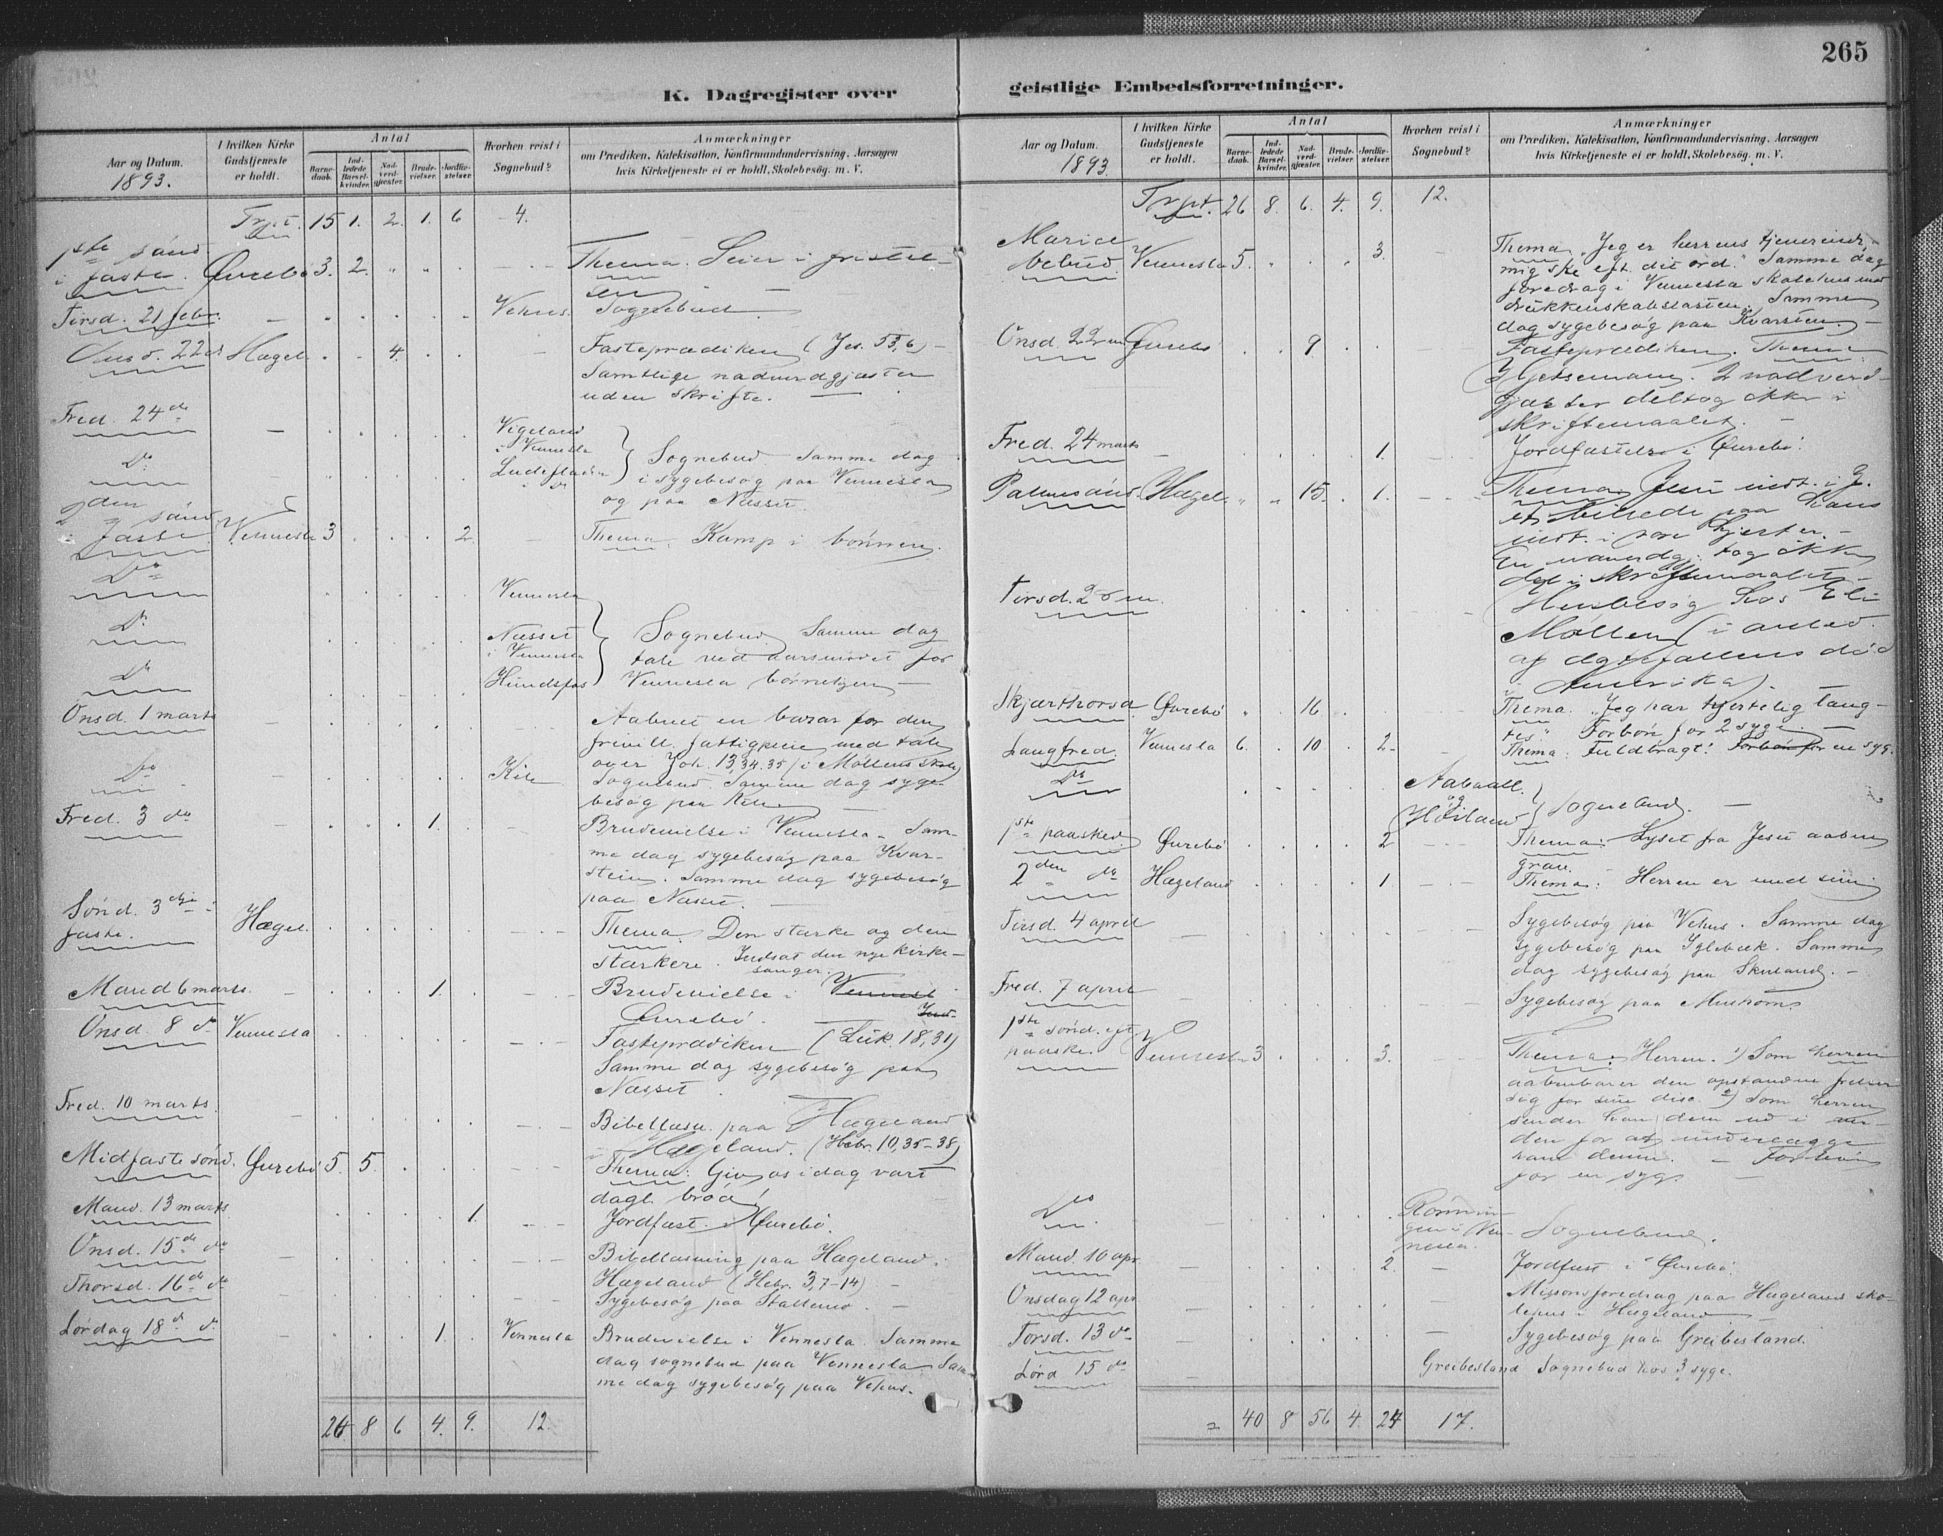 265
K. Dagregister over
geistlige Embedsforretninger.
Aar og Datum.
1893.
I hvilken Kirke
Gudstjeneste
er holdt.
Antal
Barne-
daab.
Ind-
ledede
Barsel-
kvinder.
Nad-
verd-
gjæster.
Brude-
vielser.
Jordfæ-
stelser.
Hvorhen reist i
Sognebud?
Anmærkninger
om Prædiken, Katekisation, Konfirmandundervisning, Aarsagen
hvis Kirketjeneste ei er holdt, Skolebesøg. m. V.
Trpt. 15 1. 2. 1. 6 4.
1ste sønd
i faste. Øvrebø 3. 2. Thema. Seier i fristel-
sen
Tirsd. 21 febr. Vehus. Sognebud.
Onsd. 22de Hægel. 4. Fasteprædiken (Jes. 53,6) -
Samtlige nadverdgjæster
uden skrifte.
Fred. 24de
Vigeland
i Vennesla
Do
Sognebud. Samme dag
i sygebesøg paa Vennesla
og paa Næsset.
2den sønd
i faste Vennesla 3 2. Thema. Kamp i bønnen.
Do Vennesla
Do Næsset
i Vennesla
Sognebud Samme dag
tale ved aarsmødet for
Do Hundsfos Vennesla børnehjem
Onsd. 1 marts Aabnet en bazar for den
frivill. fattigpleie med tale
over Joh. 13,34.35 (i Mollens skole)
Do Kile Sognebud. Samme dag syge-
besøg paa Kile
Fred. 3 do 1. Brudevielse i Vennesla. Sam-
me dag sygebesøg paa Kvar-
stein. Samme dag sygebesøg
paa Næsset.
Sønd. 3die i
faste. Hægel. Thema. Den stærke og den
stærkere. Indsat den nye kirke-
sanger.
Mand 6 marts. 1. Brudevielse i Vennesl
Øvrebø.
Onsd. 8 do Vennesla Fasteprædiken (Luk 18,31)
Samme dag sygebesøg paa
Næsset.
Fred. 10 marts. Bibellæsn. paa Hægeland
i Hægeland. (Hebr. 10,35-38)
Midfaste sønd. Øvrebø 5. 5. Thema: Giv os i dag vort
dagl. brød!
Mand. 13 marts 1. Jordfæst. i Øvrebø.
Onsd. 15de do Bibellæsning paa Hægeland i
Hægeland (Hebr. 3,7-14)
Thorsd. 16de do Sygebesøg paa Stallemo.
Lørdag 18de do 1. Vennesla Brudevielse i Vennesla. Samme
dag sognebud paa Vennesla Sam-
me dag sygebesøg paa Vehus.
26 8 6 4. 9. 12.
Aar og Datum.
1893
I hvilken Kirke
Gudstjeneste
er holdt.
Antal
Barne-
daab.
Ind-
ledede
Barsel-
kvinder.
Nad-
verd-
gjæster.
Brude-
vielser.
Jordfæ-
stelser.
Hvorhen reist i
Sognebud?
Anmærkninger
om Prædiken, Katekisation, Konfirmandundervisning, Aarsagen
hvis Kirketjeneste ei er holdt, Skolebesøg. m. V.
Trpt. 26 8. 6. 4. 9. 12.
Mariæ
bebud. Vennesla 5. 3. Thema. Jeg er herrens tjenerinde,
mig ske eft. dit ord." Samme dag
foredrag i Vennesla skolehus mod
drukkenskabslasten. Samme
dag sygebesøg paa Kvarsten. -
Onsd 22 Øvrebø 9 Fasteprædiken. Thema
I Getsemane. 2 nadverd-
gjæster deltog ikke i
skriftemaalet.
Fred. 24 marts 1. Jordfæstelse i Øvrebø.
Palmesønd. Hægel. 15. 1. Thema. Jesu indt. i J.
et billede paa hans
indt. i vore hjerter. -
tog ikke
del i skriftemaalet. -
Tirsd. 28 Husbesøg hos
Mollen (i anled.
af død
i Amerika).
Skjærthorsd. Øvrebø 16 Thema. "Jeg har hjertelig læng-
tes" Forbøn for 2 syge
Langfred. Vennesla 6. 10. 2. Thema. Fuldbragt! Forbøn for en syg.
Do Aabaall.
og
Høiland Sognebud.
1ste paasked. Øvrebø 2 Thema: Lyset fra Jesu aabne
grav.
2den do Hægeland 1 Thema: Herren er med sine
Tirsd. 4 april Sygebesøg paa Vehus. Samme dag
sygebesøg paa Iglebæk. Samme
dag sygebesøg paa Skuland. -
Fred. 7 april Sygebesøg paa
1ste sønd. eft.
paaske. Vennesla 3 3. Thema: Herren. 1) Som herren
aabenbarer den opstandne frelser
sig for sine disc. 2) Som herren
sender han dem ud i ver-
den for at underlægge
ham denne. - Forbøn
for en syg.
Do
gen i Ven-
nesla. Sognebud.
Mand 10 apr. 2. Jordfæst i Øvrebø.
Onsdag 12 apr Missonsforedrag paa Hægelands sko-
lehus i Hægeland
Torsd. 13 do Sygebesøg paa Greibesland.
Lørd 15 do Greibesland Sognebud hos 3 syge.
= 40 8 56 4 24 17.